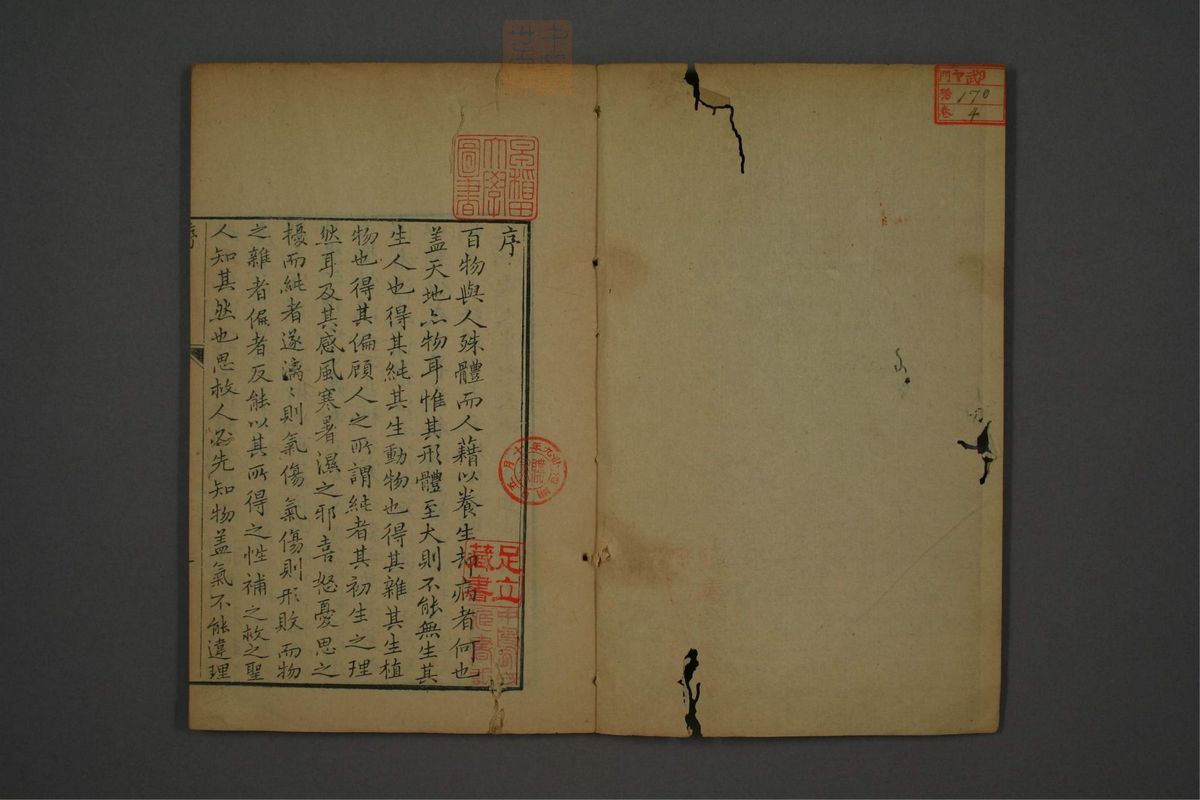 序
百物與人殊體而人藉以養生却病者何也
盖天地亦物耳惟其形體至大則不能無生其
生人也得其純其生動物也得其雜其生植
物也得其偏顧人之所謂純者其初生之理
然耳及其感風寒暑濕之邪喜怒憂思之
擾而純者遂漓〻則氣傷氣傷則形敗而物
之雜者偏者反能以其所得之性補之救之聖
人知其然也思救人必先知物盖氣不能違理
序
早稻田
大學
圖書
足立
藏書
門
號
卷
170
4